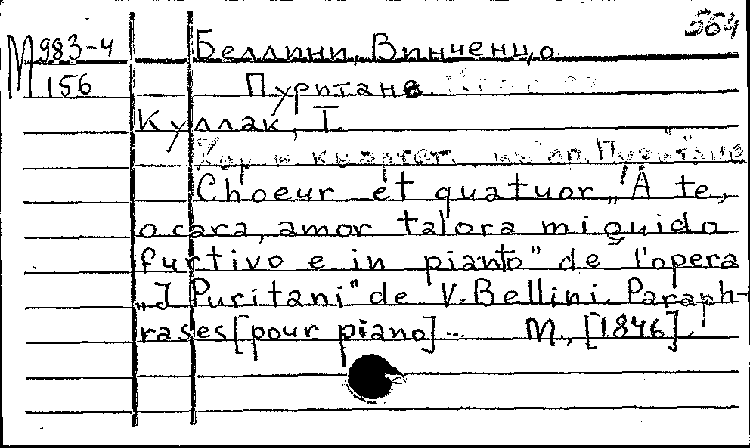 564
М 983-4
156
Беллини, Винченцо
Пуритане
Куллак, Т.
Хор и квартет из оп. Пуритане
Choeur et quatuor „A te,
o cara, amor talora mi guido
furtivo e in pianto" de l'opera
„I Puritani" de V. Bellini. Paraph-
rases [pour piano].- М., [1846]